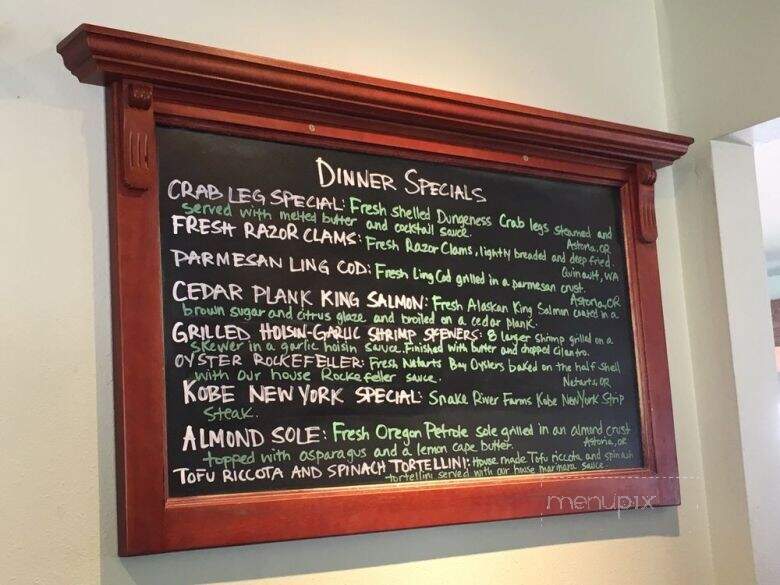 DINNER SPECIALS
CRAB LEG SPECIAL: Fresh shelled Dungeness Crab legs steamed and
served with melted butter and cocktail sauce. Astoria, OR
FRESH RAZOR CLAMS: Fresh Razor Clams, lightly breaded and deep fried.
Quinault, WA
PARMESAN LING COD: Fresh Ling Cod grilled in a parmesan crust.
Astoria, OR
CEDAR PLANK KING SALMON: Fresh Alaskan King Salmon coated in a
brown sugar and citrus glaze and broiled on a cedar plank.
GRILLED HOISIN-GARLIC SHRIMP SKEWERS: 8 larger shrimp grilled on a
skewer in a garlic hoisin sauce. Finished with butter and chopped cilantro.
OYSTER ROCKEFELLER: Fresh Netarts Bay Oysters baked on the half shell
with our house Rockefeller sauce. Netarts, OR
KOBE NEW YORK SPECIAL: Snake River Farms Kobe New York Strip
Steak.
ALMOND SOLE: Fresh Oregon Petrole sole grilled in an almond crust
topped with asparagus and a lemon cape butter. Astoria, OR
TOFU RICCOTA AND SPINACH TORTELLINI: House made Tofu riccota and spinach
tortellini served with our house marinara sauce.
menupix